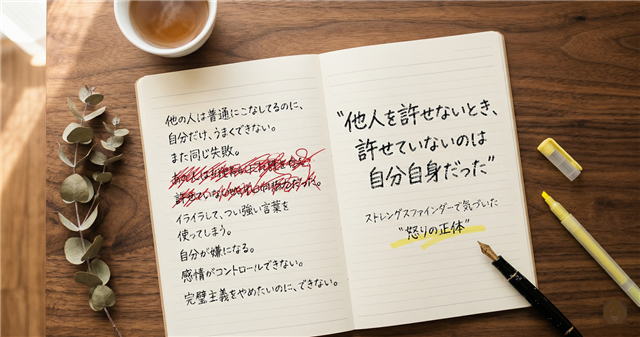 他の人は普通にこなしてるのに、
自分だけ、うまくできない。
また同じ失敗。
イライラして、つい強い言葉を
使ってしまう。
自分が嫌になる。
感情がコントロールできない。
完璧主義をやめたいのに、できない。
“他人を許せないとき、
許せていないのは
自分自身だった”
ストレングスファインダーで気づいた
“怒りの正体”